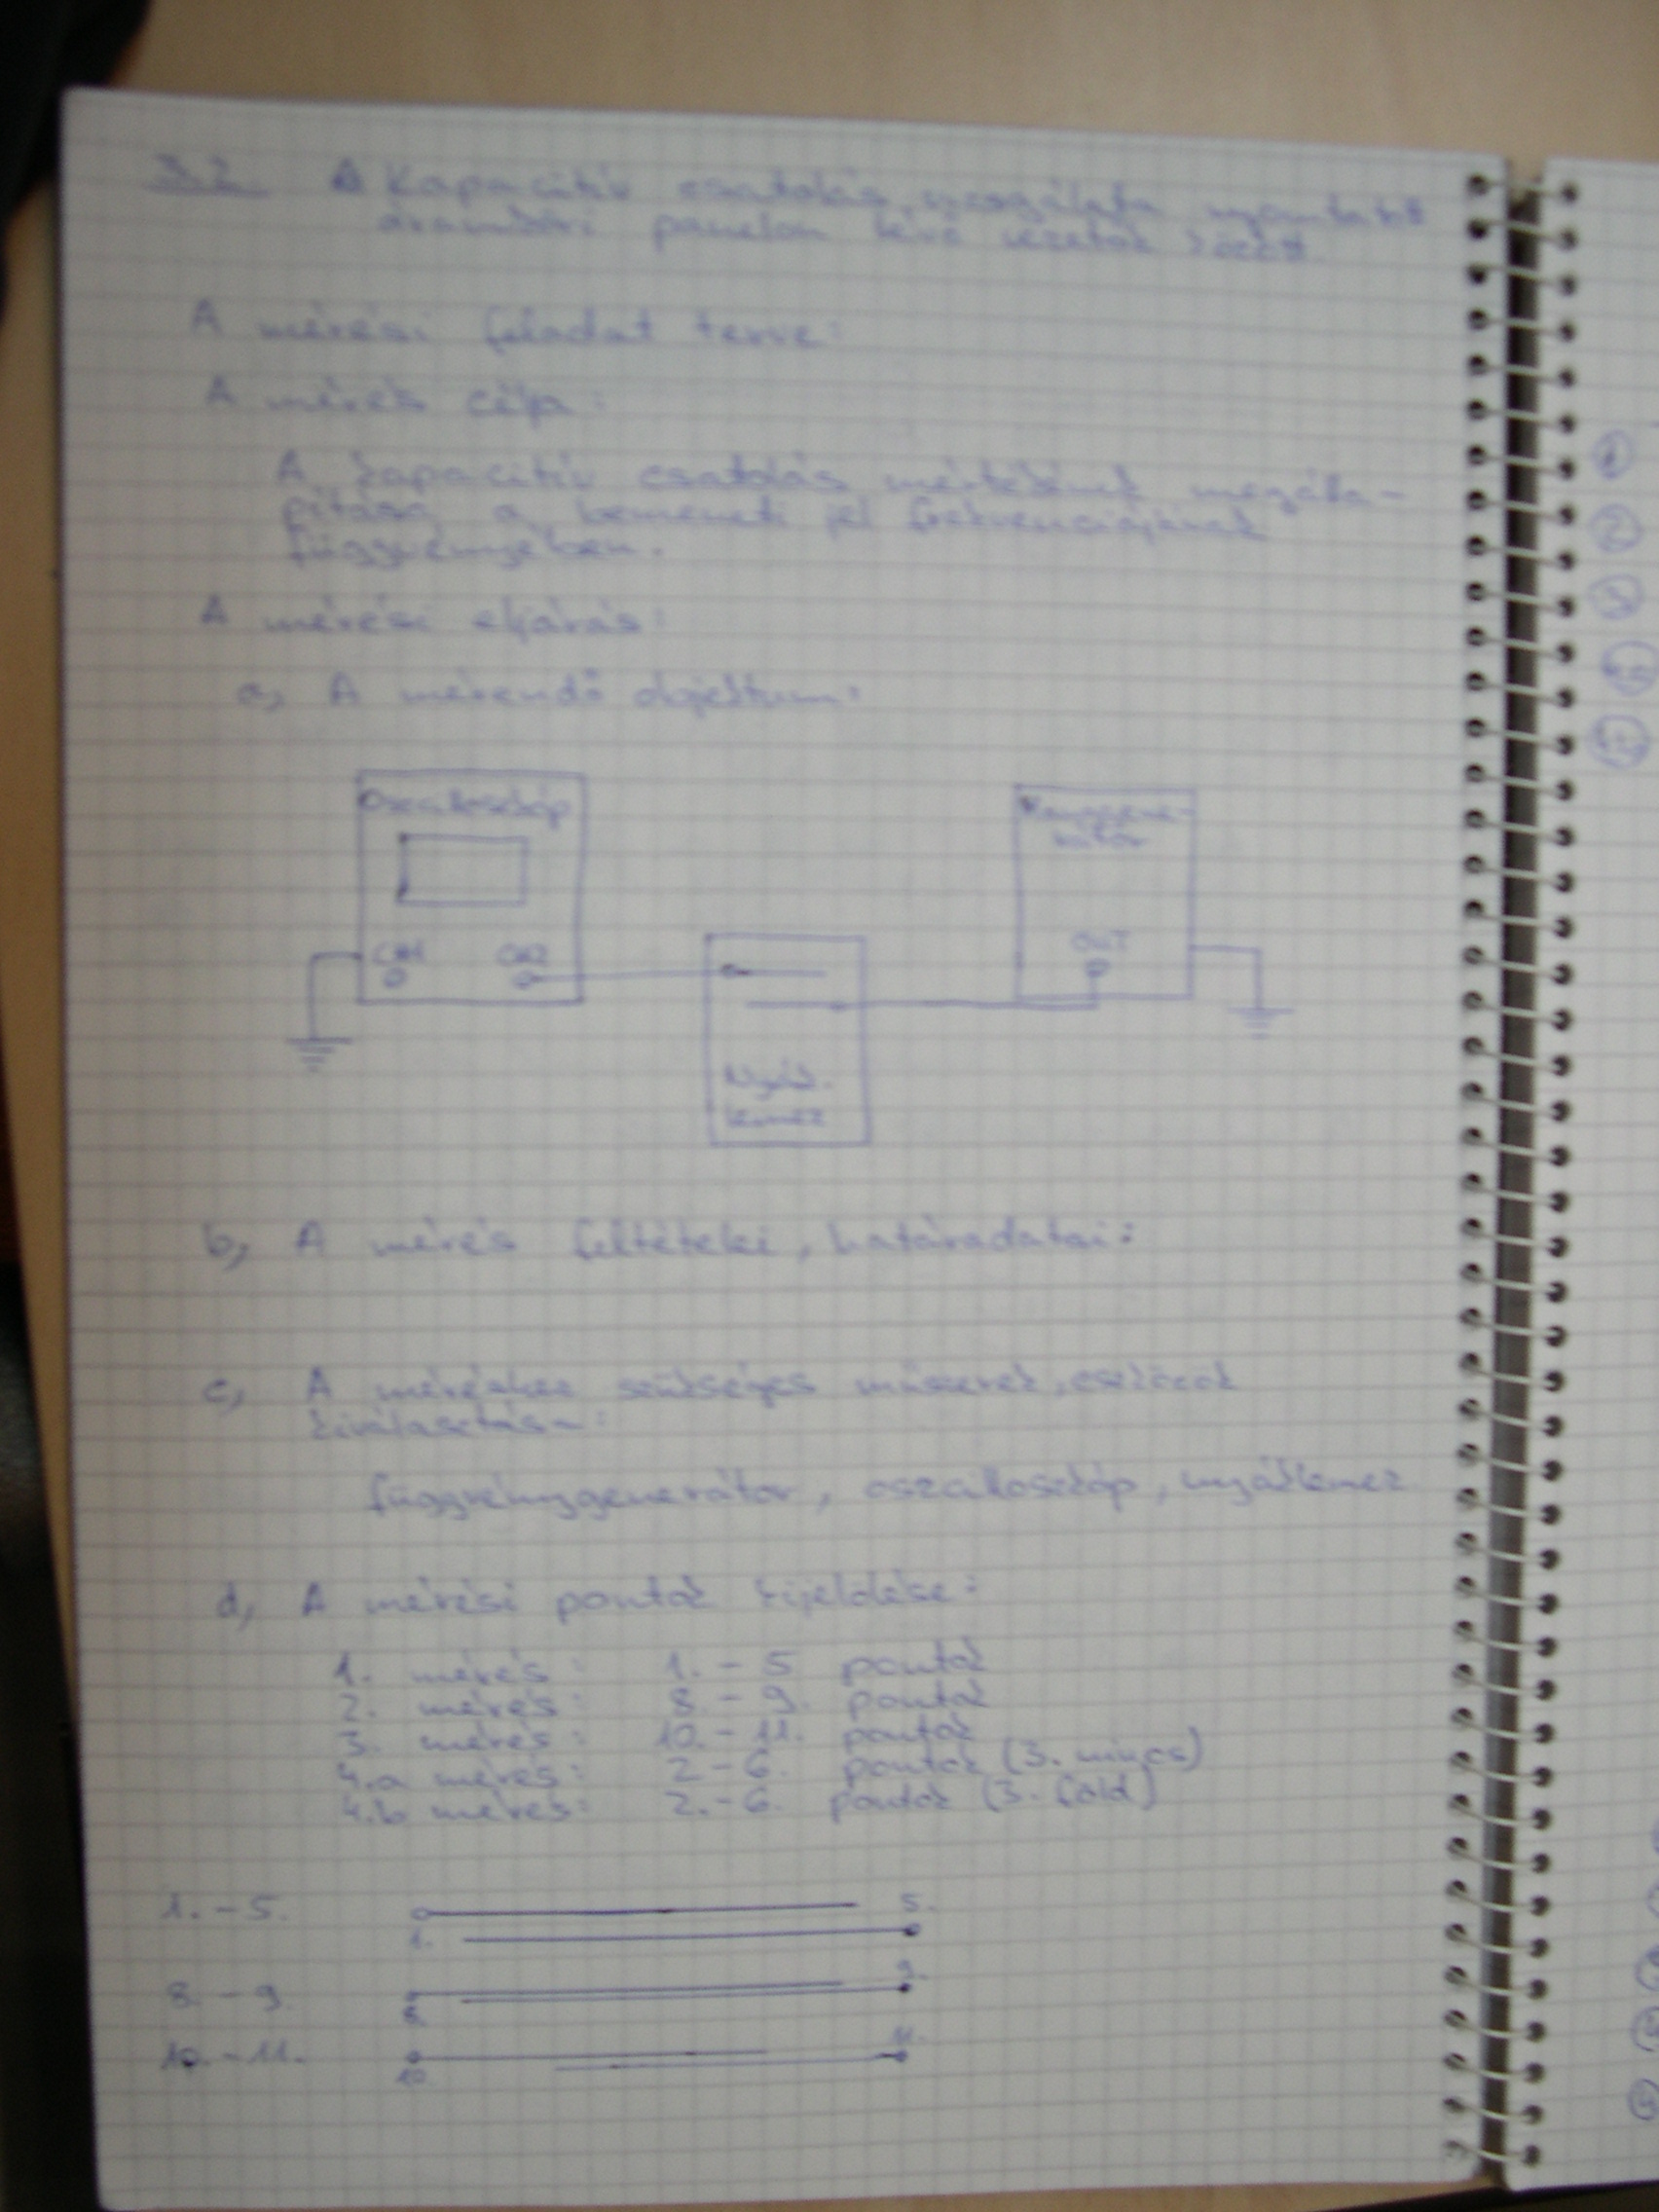 3.2 A Kapacitív csatolás vizsgálata nyomtatott
áramköri panelon lévő vezetők között
A mérési feladat terve:
A mérés célja:
A kapacitív csatolás mértékének megálla-
pítása a bemeneti jel frekvenciájának
függvényében.
A mérési eljárás:
a, A mérendő objektum:
Oszcilloszkóp
CH1 CH2
Nyák-
lemez
OUT
b, A mérés feltételei, határadatai:
c, A méréshez szükséges műszerek, eszközök
kiválasztása:
függvénygenerátor, oszcilloszkóp, nyáklemez
d, A mérési pontok kijelölése:
1. mérés: 1. - 5 pontok
2. mérés: 8. - 9. pontok
3. mérés: 10. - 11. pontok
4.a mérés: 2 - 6. pontok (3. nincs)
4.b mérés: 2. - 6. pontok (3. föld)
1. - 5. 5.
1.
8. - 9. 9.
8.
10. - 11. 11.
10.
1
2
3